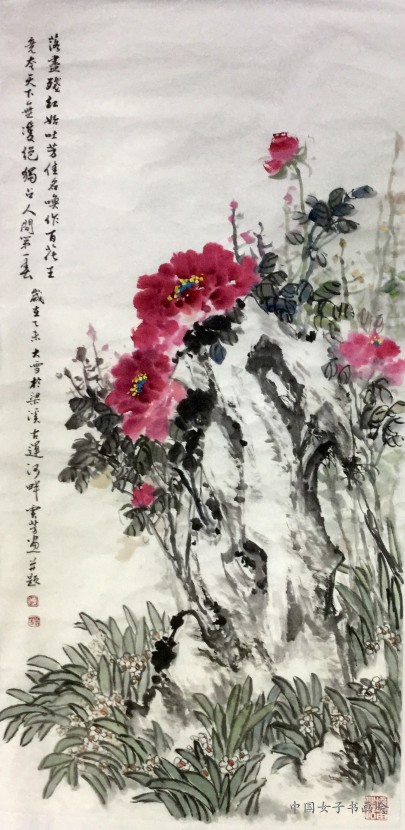 落盡殘红始吐芳佳名喚作百花王
竞夸天下無雙绝獨占人間第一春 歲在乙未大雪於梁溪古運河畔雲芳畫並题
中国女子书画会